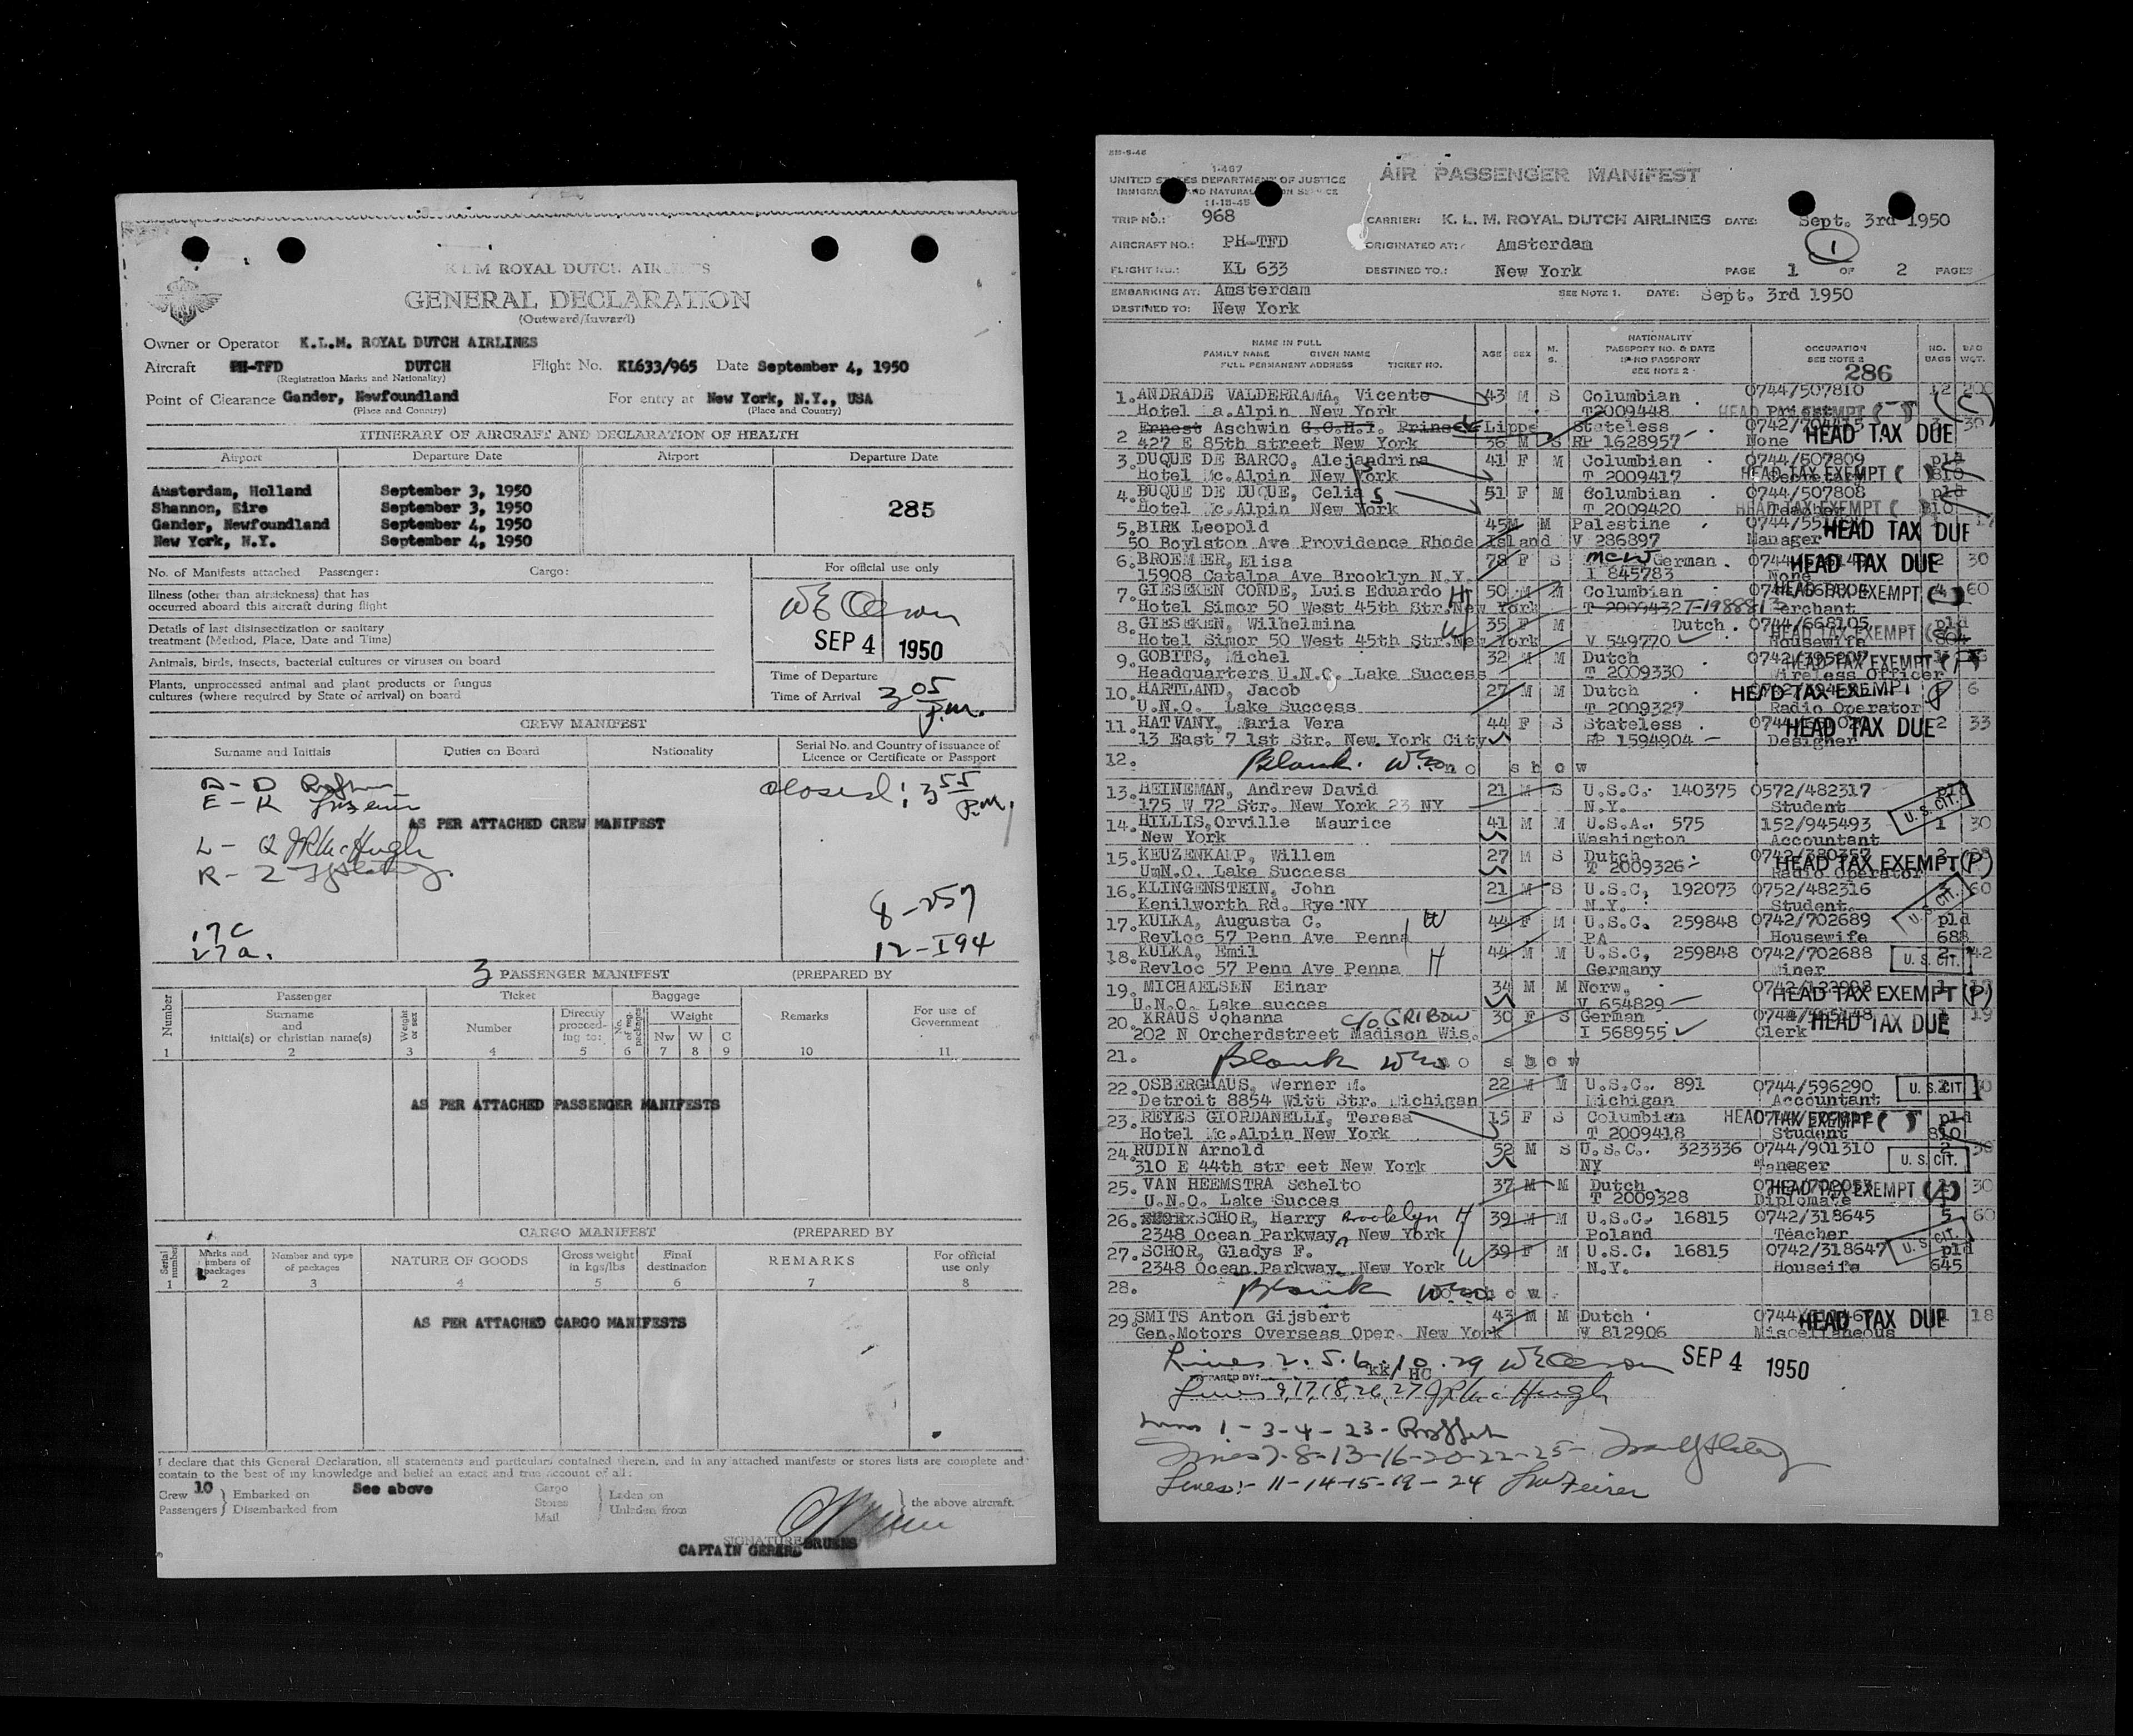 K L M ROYAL DUTCH AIRLINES
GENERAL DECLARATION
(Outward/Inward)
Owner or Operator K.L.M. ROYAL DUTCH AIRLINES
Aircraft PH-TFD DUTCH Flight No. KL633/965 Date September 4, 1950
(Registration Marks and Nationality)
Point of Clearance Gander, Newfoundland For entry at New York, N.Y., USA
(Place and Country) (Place and Country)
ITINERARY OF AIRCRAFT AND DECLARATION OF HEALTH
Airport Departure Date Airport Departure Date
Amsterdam, Holland September 3, 1950
Shannon, Eire September 3, 1950
285
Gander, Newfoundland September 4, 1950
New York, N.Y. September 4, 1950
No. of Manifests attached Passenger: Cargo: For official use only
Illness (other than airsickness) that has
occurred aboard this aircraft during flight
Details of last disinsectization or sanitary
treatment (Method, Place, Date and Time)
SEP 4 1950
Animals, birds, insects, bacterial cultures or viruses on board
Time of Departure
Plants, unprocessed animal and plant products or fungus
cultures (where required by State of arrival) on board
Time of Arrival 3 05 P.m.
CREW MANIFEST
Surname and Initials Duties on Board Nationality Serial No. and Country of issuance of
Licence or Certificate or Passport
closed: 3 55 P.M.
AS PER ATTACHED CREW MANIFEST
L - Q JR McHugh
R - 2
8-257
12-I94
17c
27a.
3 PASSENGER MANIFEST (PREPARED BY
Number Passenger Ticket Baggage Remarks For use of
Government
Surname
and
initial(s) or christian name(s) Weight or sex Number Directly
proceed-
ing to: No. of reg. packages Weight
Nw W C
1 2 3 4 5 6 7 8 9 10 11
AS PER ATTACHED PASSENGER MANIFESTS
CARGO MANIFEST (PREPARED BY
Serial number Marks and
numbers of
packages Number and type
of packages NATURE OF GOODS Gross weight
in kgs/lbs Final
destination REMARKS For official
use only
1 2 3 4 5 6 7 8
AS PER ATTACHED CARGO MANIFESTS
I declare that this General Declaration, all statements and particulars contained therein, and in any attached manifests or stores lists are complete and
contain to the best of my knowledge and belief an exact and true account of all:
Crew 10 Embarked on See above Cargo Laden on
Passengers Disembarked from Stores Mail Unladen from the above aircraft.
SIGNATURE
CAPTAIN GERARD BRUENS
1-467
UNITED STATES DEPARTMENT OF JUSTICE
AIR PASSENGER MANIFEST
IMMIGRATION AND NATURALIZATION SERVICE
11-15-45
TRIP NO.: 968 CARRIER: K. L. M. ROYAL DUTCH AIRLINES DATE: Sept. 3rd 1950
AIRCRAFT NO.: PH-TFD ORIGINATED AT: Amsterdam 1
FLIGHT NO.: KL 633 DESTINED TO.: New York PAGE 1 OF 2 PAGES
EMBARKING AT: Amsterdam SEE NOTE 1. DATE: Sept. 3rd 1950
DESTINED TO: New York
NAME IN FULL
FAMILY NAME GIVEN NAME
FULL PERMANENT ADDRESS TICKET NO. AGE SEX M. S. NATIONALITY
PASSPORT NO. & DATE
IF NO PASSPORT
SEE NOTE 2 OCCUPATION
SEE NOTE 2 NO. BAGS BAG WGT.
286
1. ANDRADE VALDERRAMA, Vicente 43 M S Columbian 0744/507810 12 200
Hotel a.Alpin New York T2009448 HEAD TAX EXEMPT
2 Ernest Aschwin G.O.H.I. Prins Lippe Stateless
427 E 85th street New York 36 M S RP 1628957 None HEAD TAX DUE
3. DUQUE DE BARCO, Alejandrina 41 F M Columbian 0744/507809 pld
Hotel Mc.Alpin New York T 2009417 HEAD TAX EXEMPT 810
4. BUQUE DE DUQUE, Celia S 51 F M Columbian 0744/507808 pld
Hotel Mc.Alpin New York T 2009420 HEAD TAX EXEMPT 810
5. BIRK Leopold 45 M M Palestine
50 Boylston Ave Providence Rhode Island V 286897 Manager HEAD TAX DUE
6. BROEMMER, Elisa 78 F S German 2 30
15908 Catalpa Ave Brooklyn N.Y. I 845783 None HEAD TAX DUE
7. GIESEKEN CONDE, Luis Eduardo H 50 M M Columbian HEAD TAX EXEMPT 4 60
Hotel Simor 50 West 45th Str.New York T 2009432 Merchant
8. GIESEKEN, Wilhelmina W 35 F M Dutch 0744/668105 pld
Hotel Simor 50 West 45th Str.New York V 549770 Housewife HEAD TAX EXEMPT 804
9. GOBITS, Michel 32 M M Dutch
Headquarters U.N.O. Lake Success T 2009330 Wireless Officer HEAD TAX EXEMPT
10. HARTLAND, Jacob 27 M M Dutch HEAD TAX EXEMPT 6
U.N.O. Lake Success T 2009327 Radio Operator
11. HATVANY, Maria Vera 44 F S Stateless HEAD TAX DUE 2 33
13 East 7 1st Str. New York City RP 1594904 Designer
12. Blank. no show
13. HEINEMAN, Andrew David 21 M S U.S.C. 140375 0572/482317
175 W 72 Str. New York 23 NY N.Y. Student U.S. CIT.
14. HILLIS,Orville Maurice 41 M M U.S.A. 575 152/945493 1 30
New York Washington Accountant
15. KEUZENKAMP, Willem 27 M S Dutch 0742/380357
UmN.O. Lake Success T 2009326 Radio Operator HEAD TAX EXEMPT (P)
16. KLINGENSTEIN, John 21 M S U.S.C, 192073 0752/482316 60
Kenilworth Rd. Rye NY N.Y. Student. U.S. CIT.
17. KULKA, Augusta C. W 44 F M U.S.C. 259848 0742/702689 pld
Revloc 57 Penn Ave Penna PA Housewife 688
18. KULKA, Emil H 44 M M U.S.C, 259848 0742/702688 U.S. CIT. 42
Revloc 57 Penn Ave Penna Germany Miner
19. MICHAELSEN Einar 34 M M Norw. HEAD TAX EXEMPT (P)
U.N.O. Lake succes V 654829
20. KRAUS Johanna c/o GRIBOW 30 F S German 19
202 N Orcherdstreet Madison Wis. I 568955 Clerk HEAD TAX DUE
21. Blank no show
22. OSBERGHAUS, Werner M. 22 M M U.S.C. 891 0744/596290 U.S. CIT
Detroit 8854 Witt Str. Michigan Michigan Accountant
23. REYES GIORDANELLI, Teresa 15 F S Columbian HEAD TAX EXEMPT pld
Hotel Mc.Alpin New York T 2009418 Student 810
24. RUDIN Arnold 52 M S U.S.C. 323336 0744/901310 2
310 E 44th str eet New York NY Manager U.S. CIT.
25. VAN HEEMSTRA Schelto 37 M M Dutch HEAD TAX EXEMPT 30
U.N.O. Lake Succes T 2009328 Diplomate
26. SCHOR, Harry Brooklyn H 39 M M U.S.C. 16815 0742/318645 5 60
2348 Ocean Parkway New York Poland Teacher
27. SCHOR, Gladys F. W 39 F M U.S.C. 16815 0742/318647 U.S. CIT. pld
2348 Ocean Parkway New York N.Y. Houseife 645
28. Blank
29. SMITS Anton Gijsbert 43 M M Dutch HEAD TAX DUE 18
Gen.Motors Overseas Oper. New York W 812906 Miscellaneous
Lines 2. 5. 6. 10. 29 SEP 4 1950
PREPARED BY: kk/ HC
Lines 9,17,18,26,27 JR McHugh
Lines 1-3-4-23-
Lines 7-8-13-16-20-22-25-
Lines:- 11-14-15-19-24